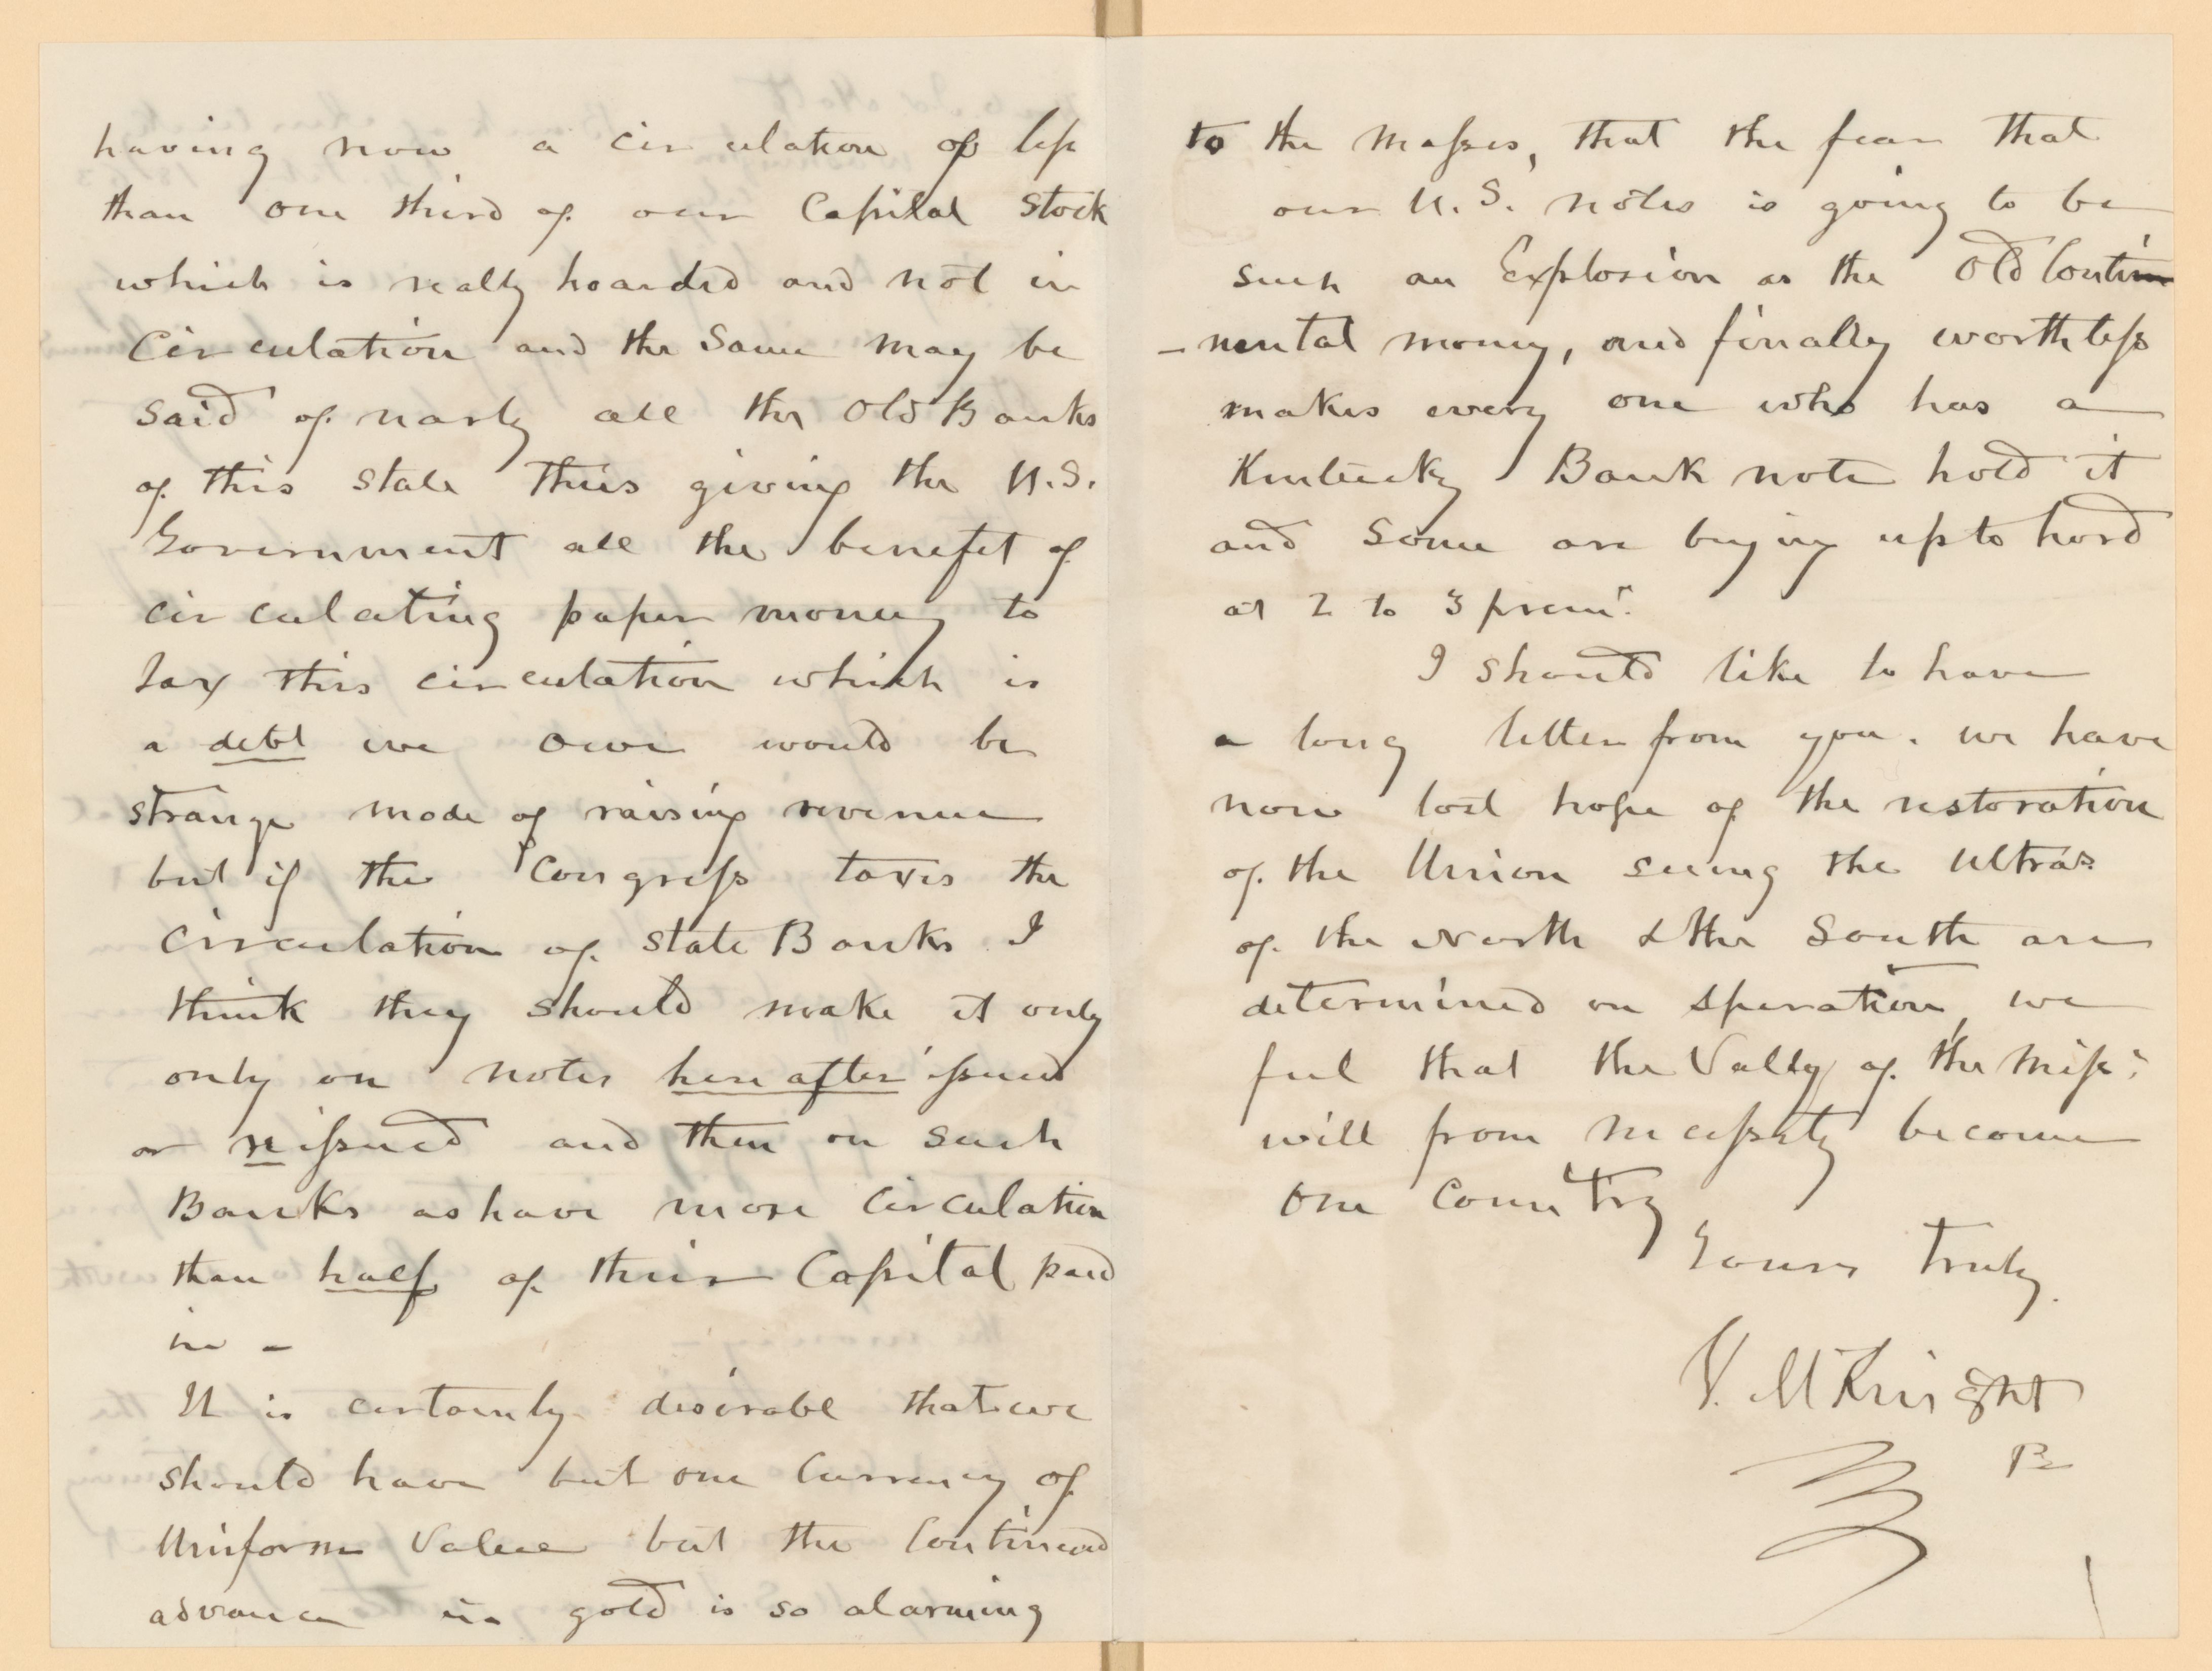 having now a circulation of less
than one third of our Capital Stock
which is really hoarded and not in
Circulation and the Same may be
said of narly all the Old Banks
of this state thus giving the U.S.
Government all the benefit of
circulating paper money to
Tax this circulation which is
a debt we owe would be
strange mode of raising revenue
but if the Congress taxes the
Circulation of State Banks I
think they should make it only
only on notes hereafter issued
or reissued and then on such
Banks as have more Circulation
than half of their Capital paid
in -
It is certainly desirabl that we
should have but one Currency of
Uniform Value but the Continued
advance in gold is so alarming
to the Masses, that the fear that
our U.S. notes is going to be
such an Explosion as the Old Contin
-nental money, and finally worthless
makes every one who has a
Kentucky Bank note hold it
and Some are buying up to hord
at 2 to 3 prem.
I should like to have
a long letter from you. we have
now lost hope of the restoration
of the Union seeing the Ultras
of the North & the South are
determined on Speration we
feel that the Vally of the Miss:
will from necessity become
One Country
Yours Truly.
V. McKnight
P